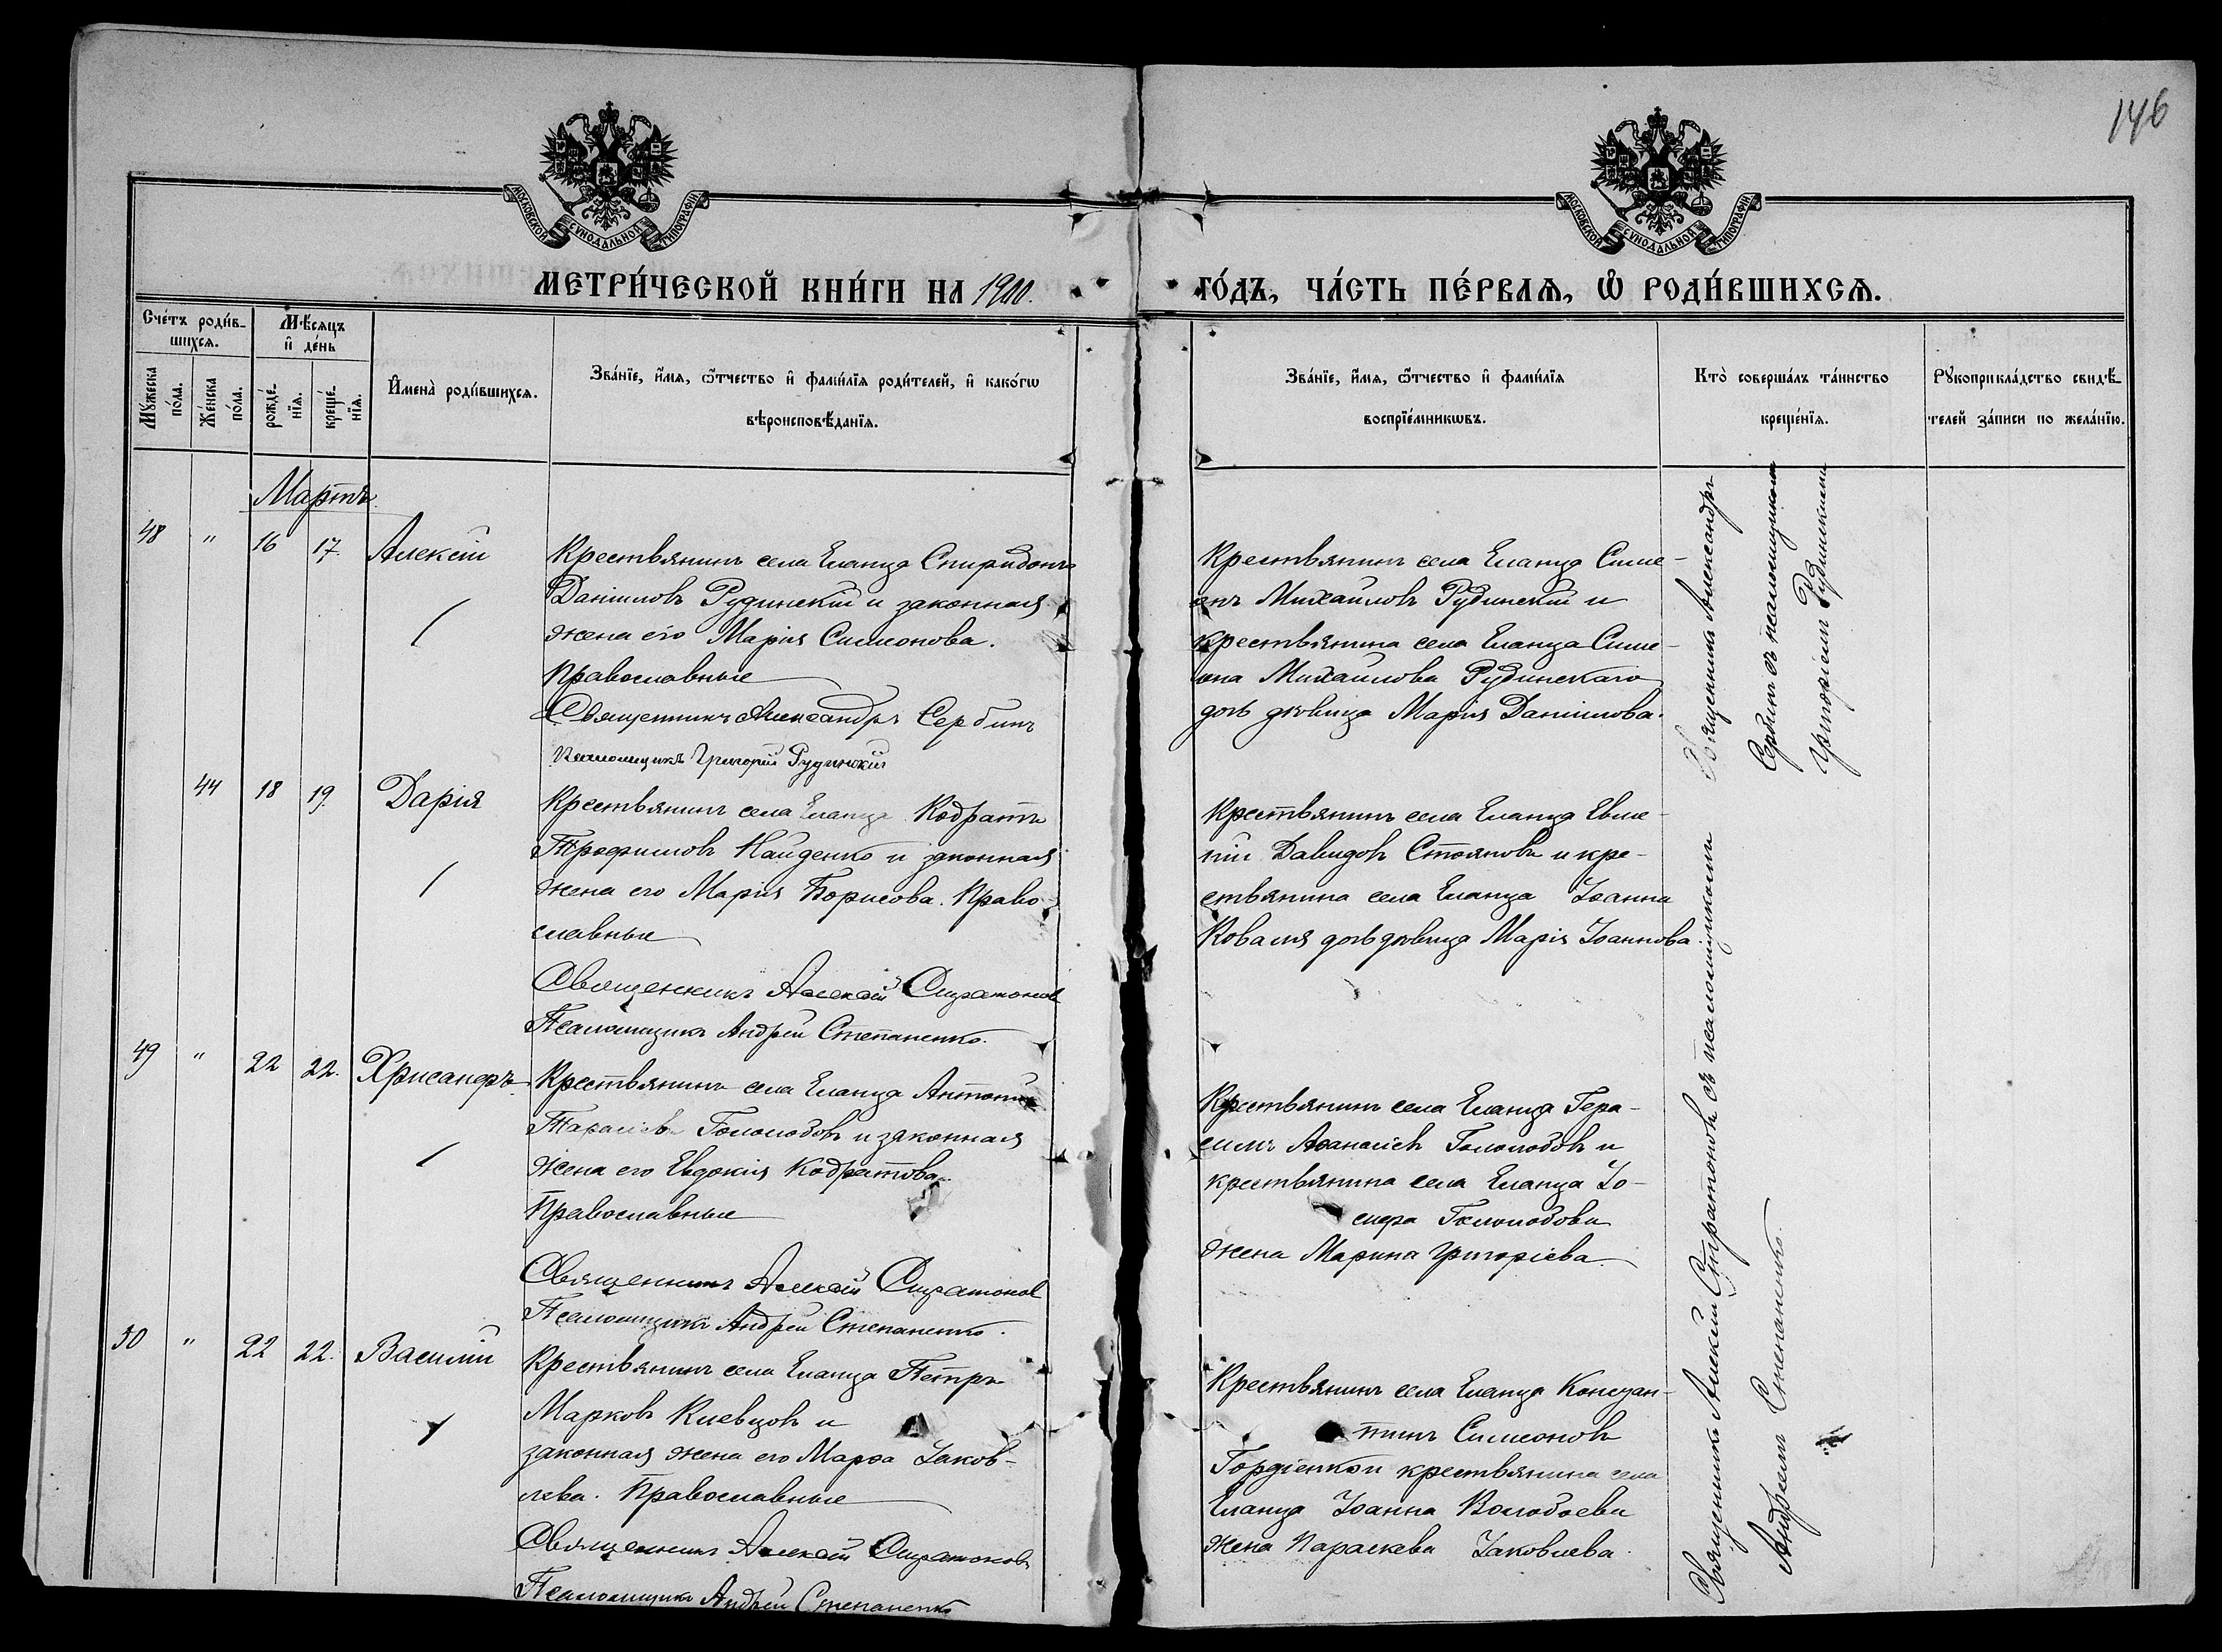 146
МОСКОВСКОЙ СУНОДАЛЬНОЙ ТИПОГРАФІИ
МОСКОВСКОЙ СУНОДАЛЬНОЙ ТИПОГРАФІИ
МЕТРИ́ЧЕСКОЙ КНИ́ГИ НА 1900.
ГО́ДЪ, ЧА́СТЬ ПЕ́РВАѦ, Ѽ РОДИ́ВШИХСѦ.
Сче́тъ роди́в-
шихсѧ.
Мѣ́сѧцъ
и҆ де́нь
Мꙋ́жеска
по́ла.
Же́нска
по́ла.
рожде́-
нїѧ.
креще́-
нїѧ.
И҆мена̀ роди́вшихсѧ.
Зва́нїе, и҆́мѧ, ѻ҆́тчество и҆ фами́лїѧ роди́телей, и҆ како́гѡ
вѣроисповѣ́данїѧ.
Зва́нїе, и҆́мѧ, ѻ҆́тчество и҆ фами́лїѧ
воспрїе́мникѡвъ.
Кто̀ соверша́лъ та́инство
креще́нїѧ.
Рꙋкоприкла́дство свидѣ́-
телей за́писи по жела́нїю.
Мартъ
48 " 16 17. Алексій
Крестьянинъ села Еланца Спиридонъ
Даниловъ Рудинскій и законная
жена его Марія Симеонова.
Православные
Священникъ Александръ Сербинъ
Псаломщикъ Григорій Рудинскій
Крестьянинъ села Еланца Симе-
онъ Михаиловъ Рудинскій и
крестьянина села Еланца Симе-
она Михаилова Рудинскаго
дочь дѣвица Марія Данилова.
Священникъ Александръ
Сербинъ съ псаломщикомъ
Григоріемъ Рудинскимъ
44 18 19. Дарія
Крестьянинъ села Еланца Кодратъ
Трофимовъ Найденко и законная
жена его Марія Борисова. Право-
славные
Священникъ Алексій Стратоновъ
Псаломщикъ Андрей Степаненко.
Крестьянинъ села Еланца Евме-
ній Давидовъ Стояновъ и кре-
стьянина села Еланца Іоанна
Коваля дочь дѣвица Марія Іоаннова.
49 " 22 22. Хрисанфъ
Крестьянинъ села Еланца Антоній
Тарасіевъ Гололобовъ и законная
жена его Евдокія Кодратова.
Православные
Священникъ Алексій Стратоновъ
Псаломщикъ Андрей Степаненко.
Крестьянинъ села Еланца Гера-
симъ Аѳанасіевъ Гололобовъ и
крестьянина села Еланца Іо-
сифа Гололобова
жена Марина Григоріева.
50 " 22 22. Василій
Крестьянинъ села Еланца Петръ
Марковъ Киевцовъ и
законная жена его Марѳа Іаков-
лева. Православные
Священникъ Алексій Стратоновъ
Псаломщикъ Андрей Степаненко
Крестьянинъ села Еланца Констан-
тинъ Симеоновъ
Гордіенко и крестьянина села
Еланца Іоанна Волобоева
жена Параскева Іаковлева.
Священникъ Алексій Стратоновъ съ псаломщикомъ
Андреемъ Степаненко.